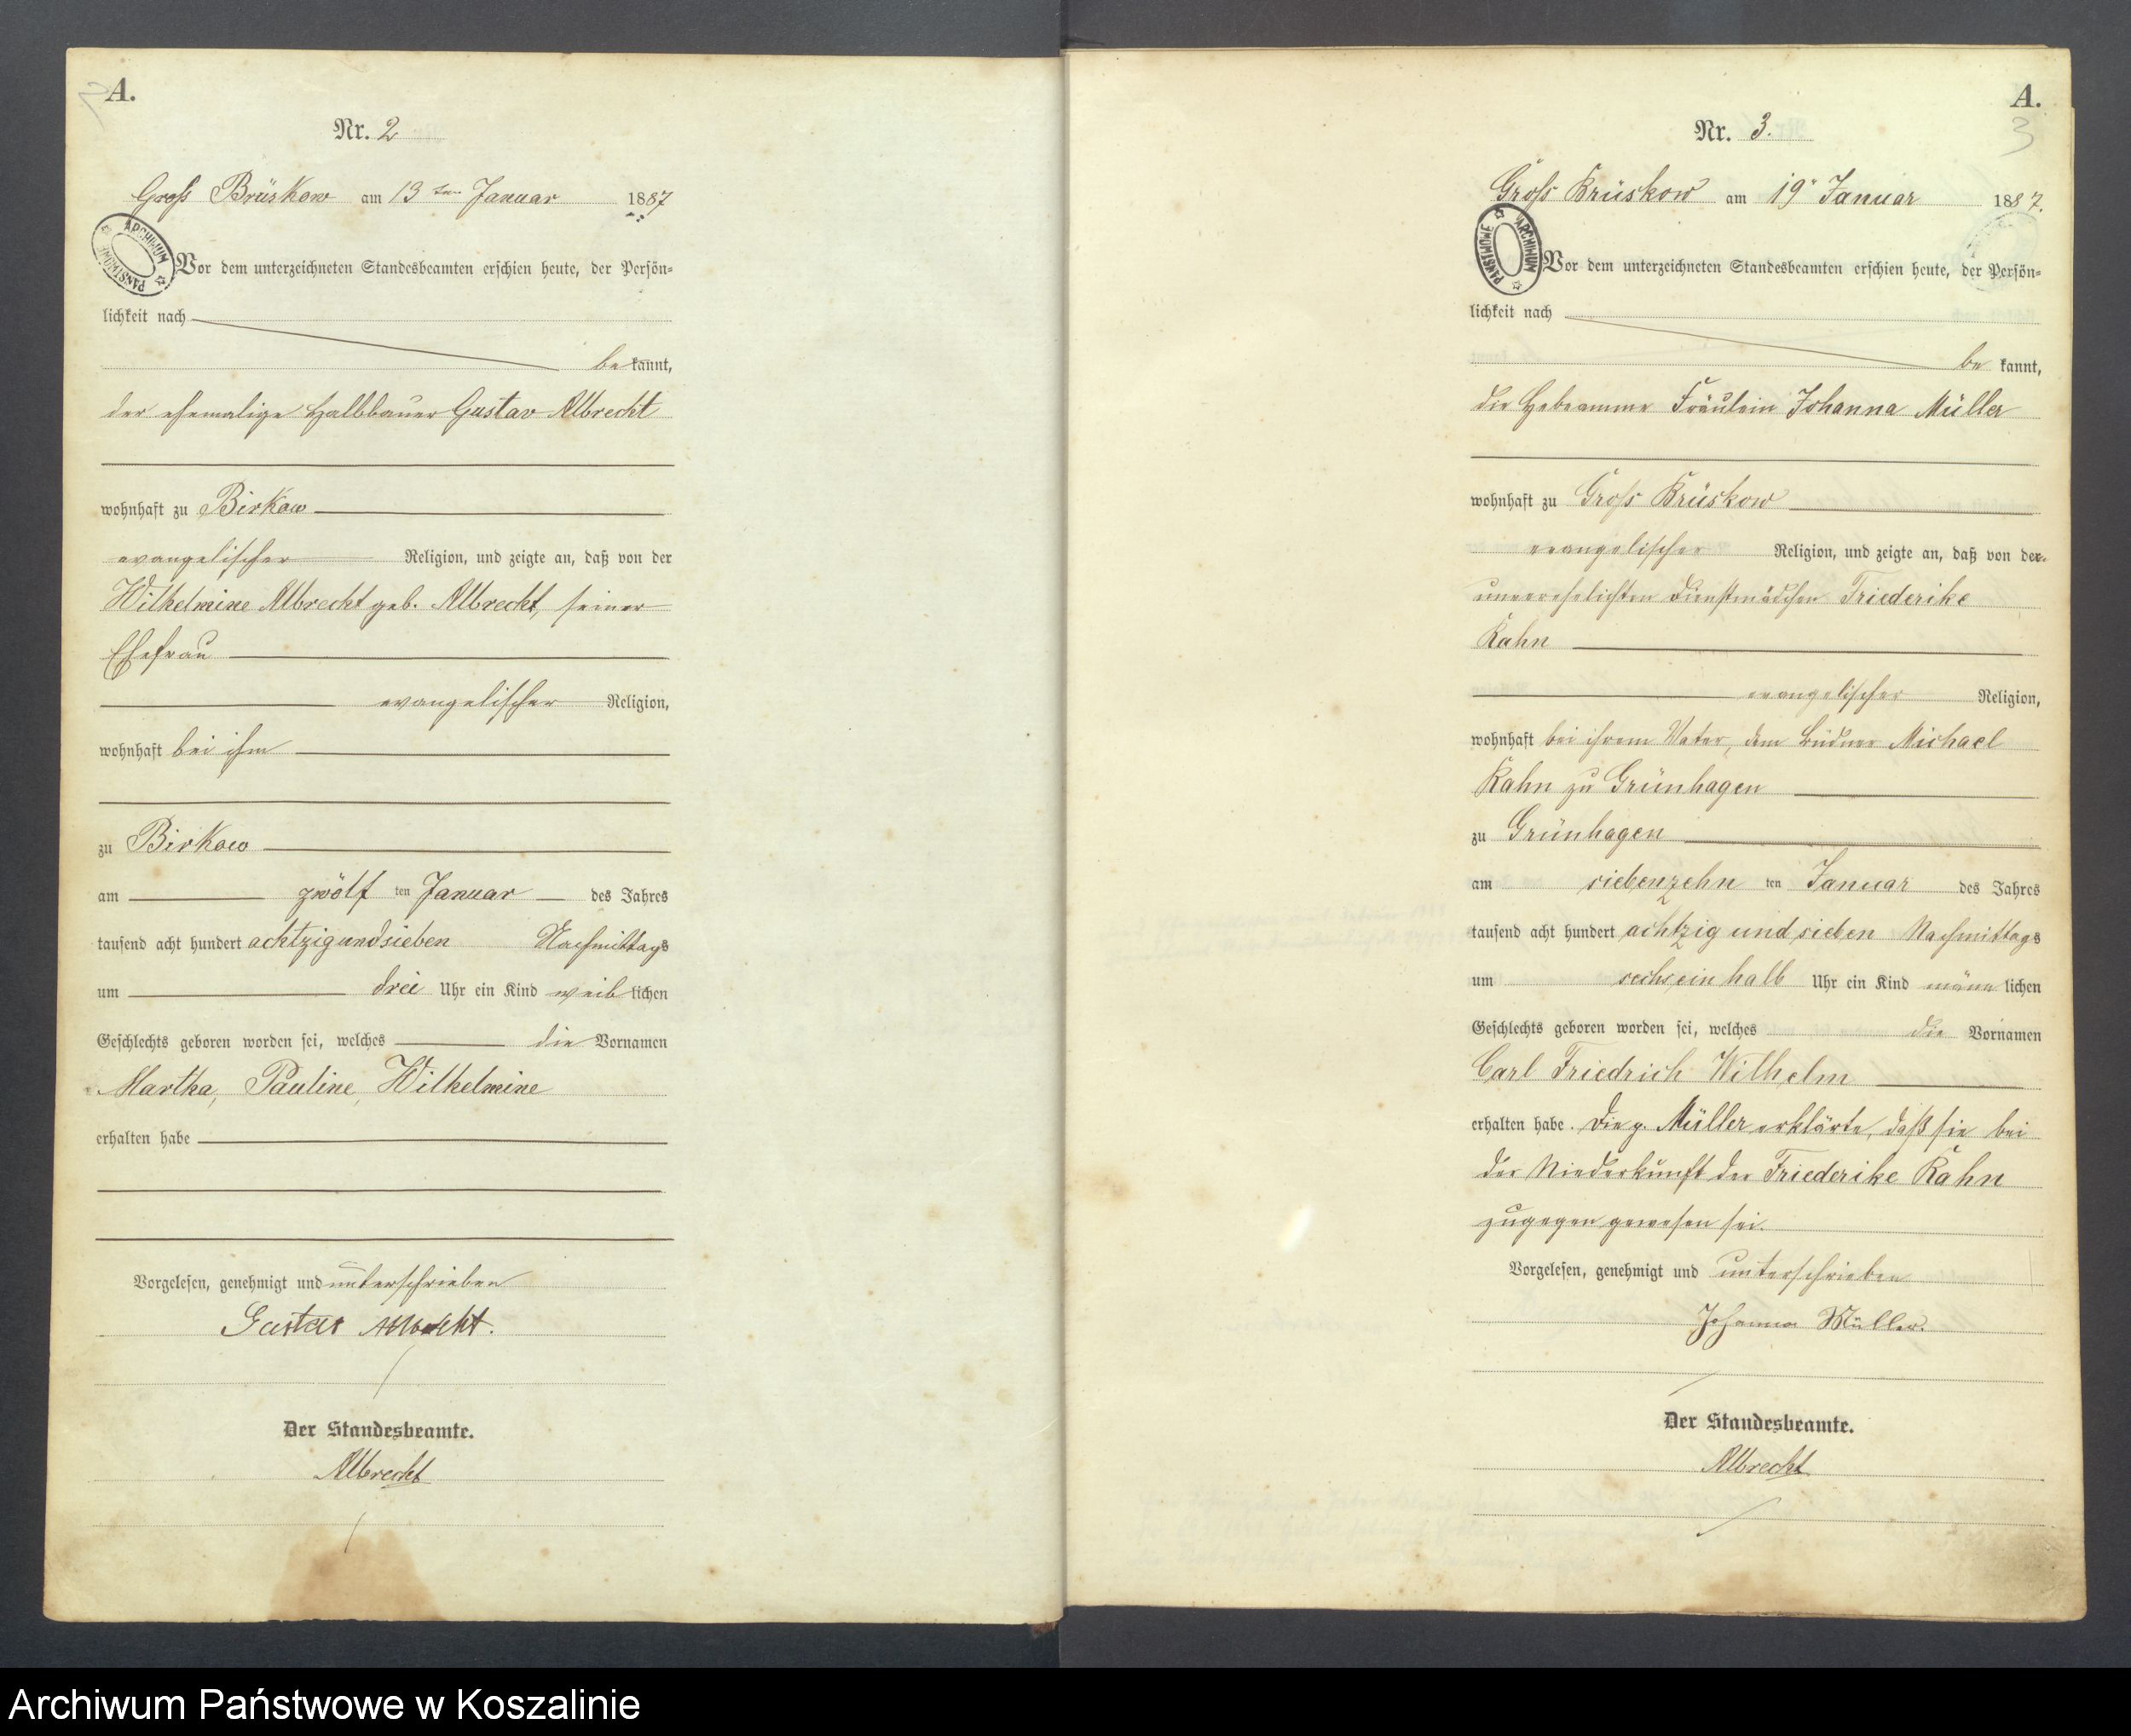 A.
2
Nr. 2
Groß Brüskow am 13ten Januar 1887
ARCHIWUM PAŃSTWOWE
Vor dem unterzeichneten Standesbeamten erschien heute, der Persön-
lichkeit nach
be kannt,
der ehemalige Halbbauer Gustav Albrecht
wohnhaft zu Birkow
evangelischer Religion, und zeigte an, daß von der
Wilhelmine Albrecht geb. Albrecht, seiner
Ehefrau
evangelischer Religion,
wohnhaft bei ihm
zu Birkow
am zwölf ten Januar des Jahres
tausend acht hundert achtzigundsieben Nachmittags
um drei Uhr ein Kind weib lichen
Geschlechts geboren worden sei, welches die Vornamen
Martha, Pauline, Wilhelmine
erhalten habe
Vorgelesen, genehmigt und unterschrieben
Gustav Albrecht.
Der Standesbeamte.
Albrecht
A.
3
Nr. 3.
Groß Brüskow am 19. Januar 1887.
ARCHIWUM PAŃSTWOWE
Vor dem unterzeichneten Standesbeamten erschien heute, der Persön-
lichkeit nach
be kannt,
die Hebeamme Fräulein Johanna Müller
wohnhaft zu Groß Brüskow
evangelischer Religion, und zeigte an, daß von der
unverehelichten Dienstmädchen Friederike
Kahn
evangelischer Religion,
wohnhaft bei ihrem Vater, dem Büdner Michael
Kahn zu Grünhagen
zu Grünhagen
am siebenzehn ten Januar des Jahres
tausend acht hundert achtzig und sieben Nachmittags
um sechs ein halb Uhr ein Kind männ lichen
Geschlechts geboren worden sei, welches die Vornamen
Carl Friedrich Wilhelm
erhalten habe. Die p. Müller erklärte, daß sie bei
der Niederkunft der Friederike Kahn
zugegen gewesen sei.
Vorgelesen, genehmigt und unterschrieben
Johanna Müller.
Der Standesbeamte.
Albrecht
Archiwum Państwowe w Koszalinie